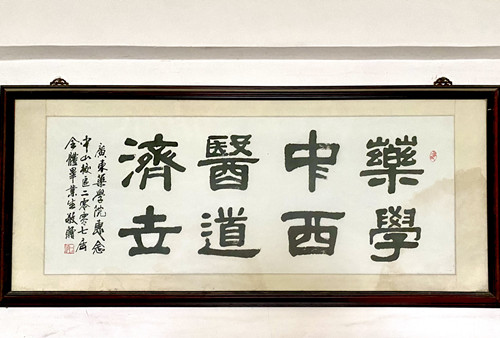 藥學
中西
醫道
濟世
廣東藥學院惠念
中山校區二零零七届
全體畢業生敬贈